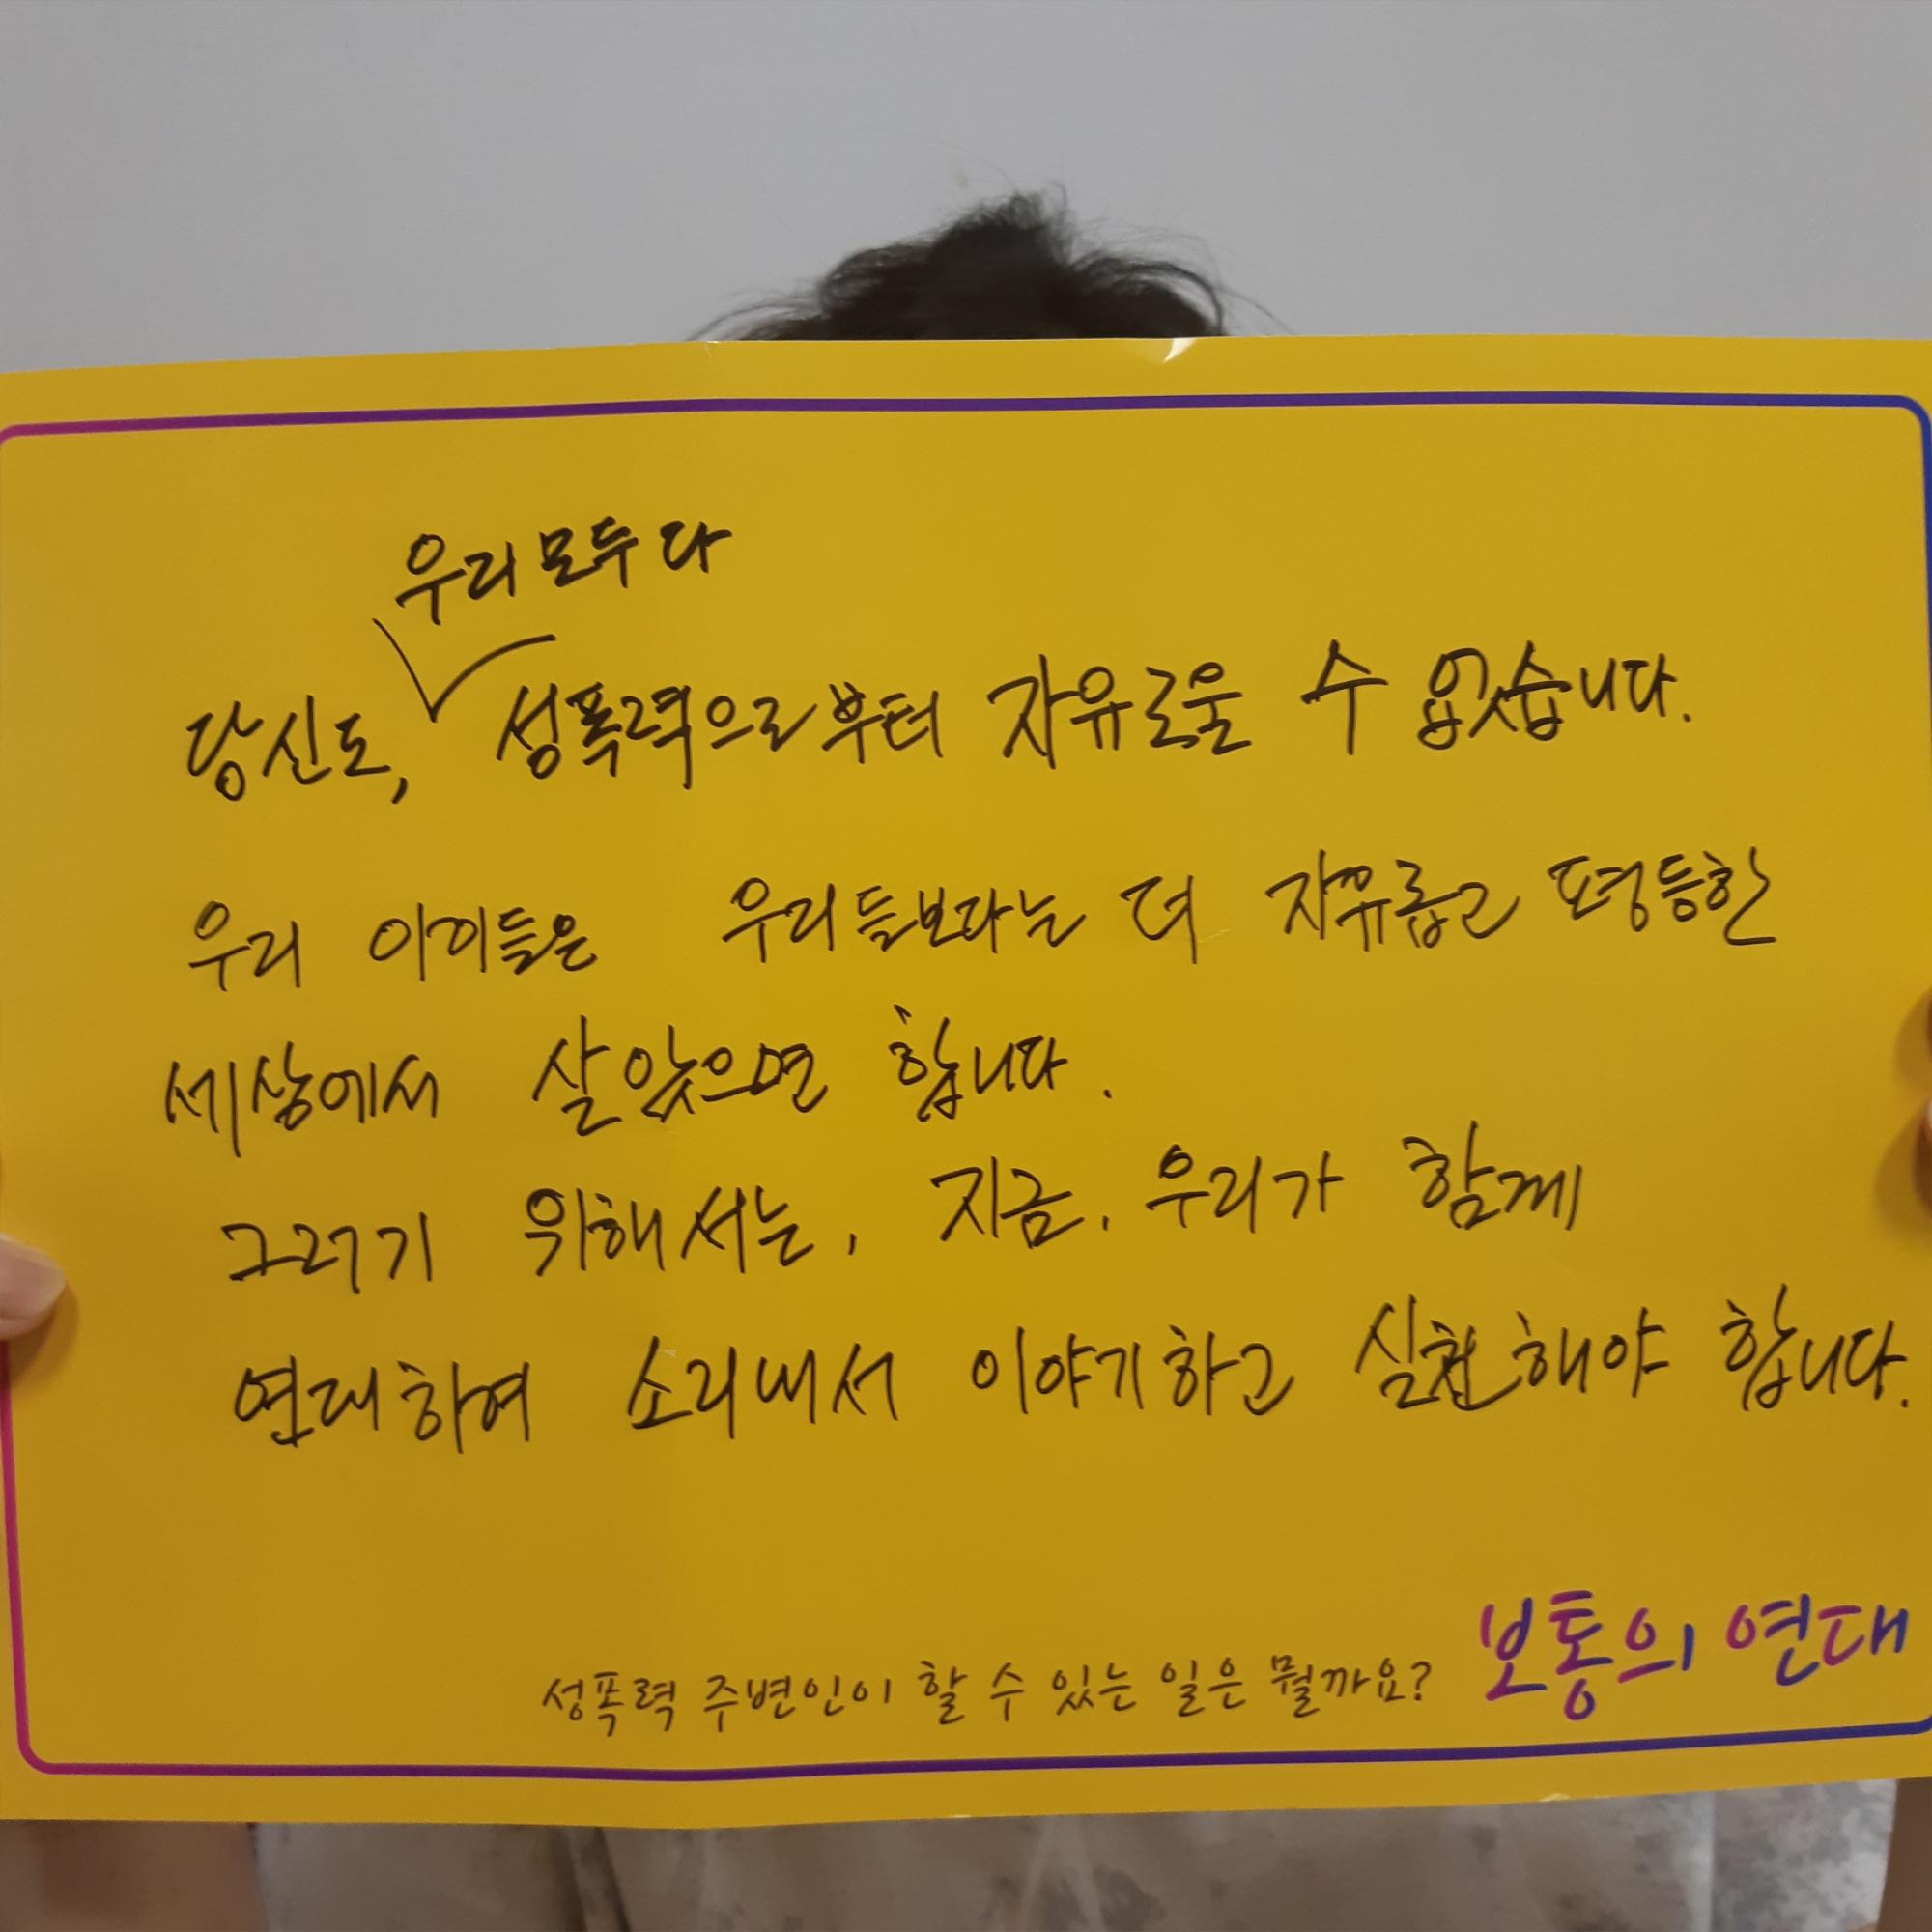 우리 모두 다
당신도, 성폭력으로부터 자유로울 수 없습니다.
우리 아이들은 우리들보다는 더 자유롭고 평등한
세상에서 살았으면 합니다.
그러기 위해서는, 지금, 우리가 함께
연대하여 소리내서 이야기하고 실천해야 합니다.
성폭력 주변인이 할 수 있는 일은 뭘까요? 보통의 연대